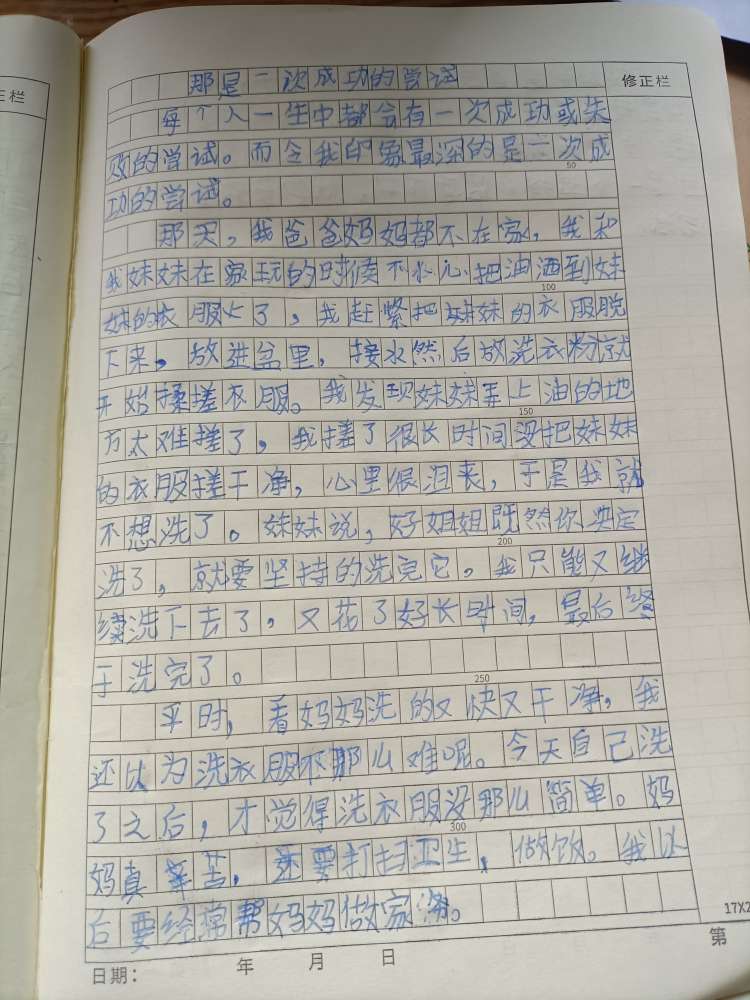 正栏
修正栏
那是一次成功的尝试
每个人一生中都会有一次成功或失
败的尝试。而令我印象最深的是一次成
50
功的尝试。
那天，我爸爸妈妈都不在家，我和
我妹妹在家玩的时候不小心把油洒到妹
100
妹的衣服上了，我赶紧把妹妹的衣服脱
下来，放进盆里，接水然后放洗衣粉就
开始揉搓衣服。我发现妹妹弄上油的地
150
方太难搓了，我搓了很长时间没把妹妹
的衣服搓干净，心里很沮丧，于是我就
不想洗了。妹妹说，好姐姐既然你决定
200
洗了，就要坚持的洗完它。我只能又继
续洗下去了，又花了好长时间，最后终
于洗完了。
250
平时，看妈妈洗的又快又干净，我
还以为洗衣服不那么难呢。今天自己洗
了之后，才觉得洗衣服没那么简单。妈
300
妈真辛苦，还要打扫卫生、做饭。我以
后要经常帮妈妈做家务。
17X2
日期： 年 月 日 第